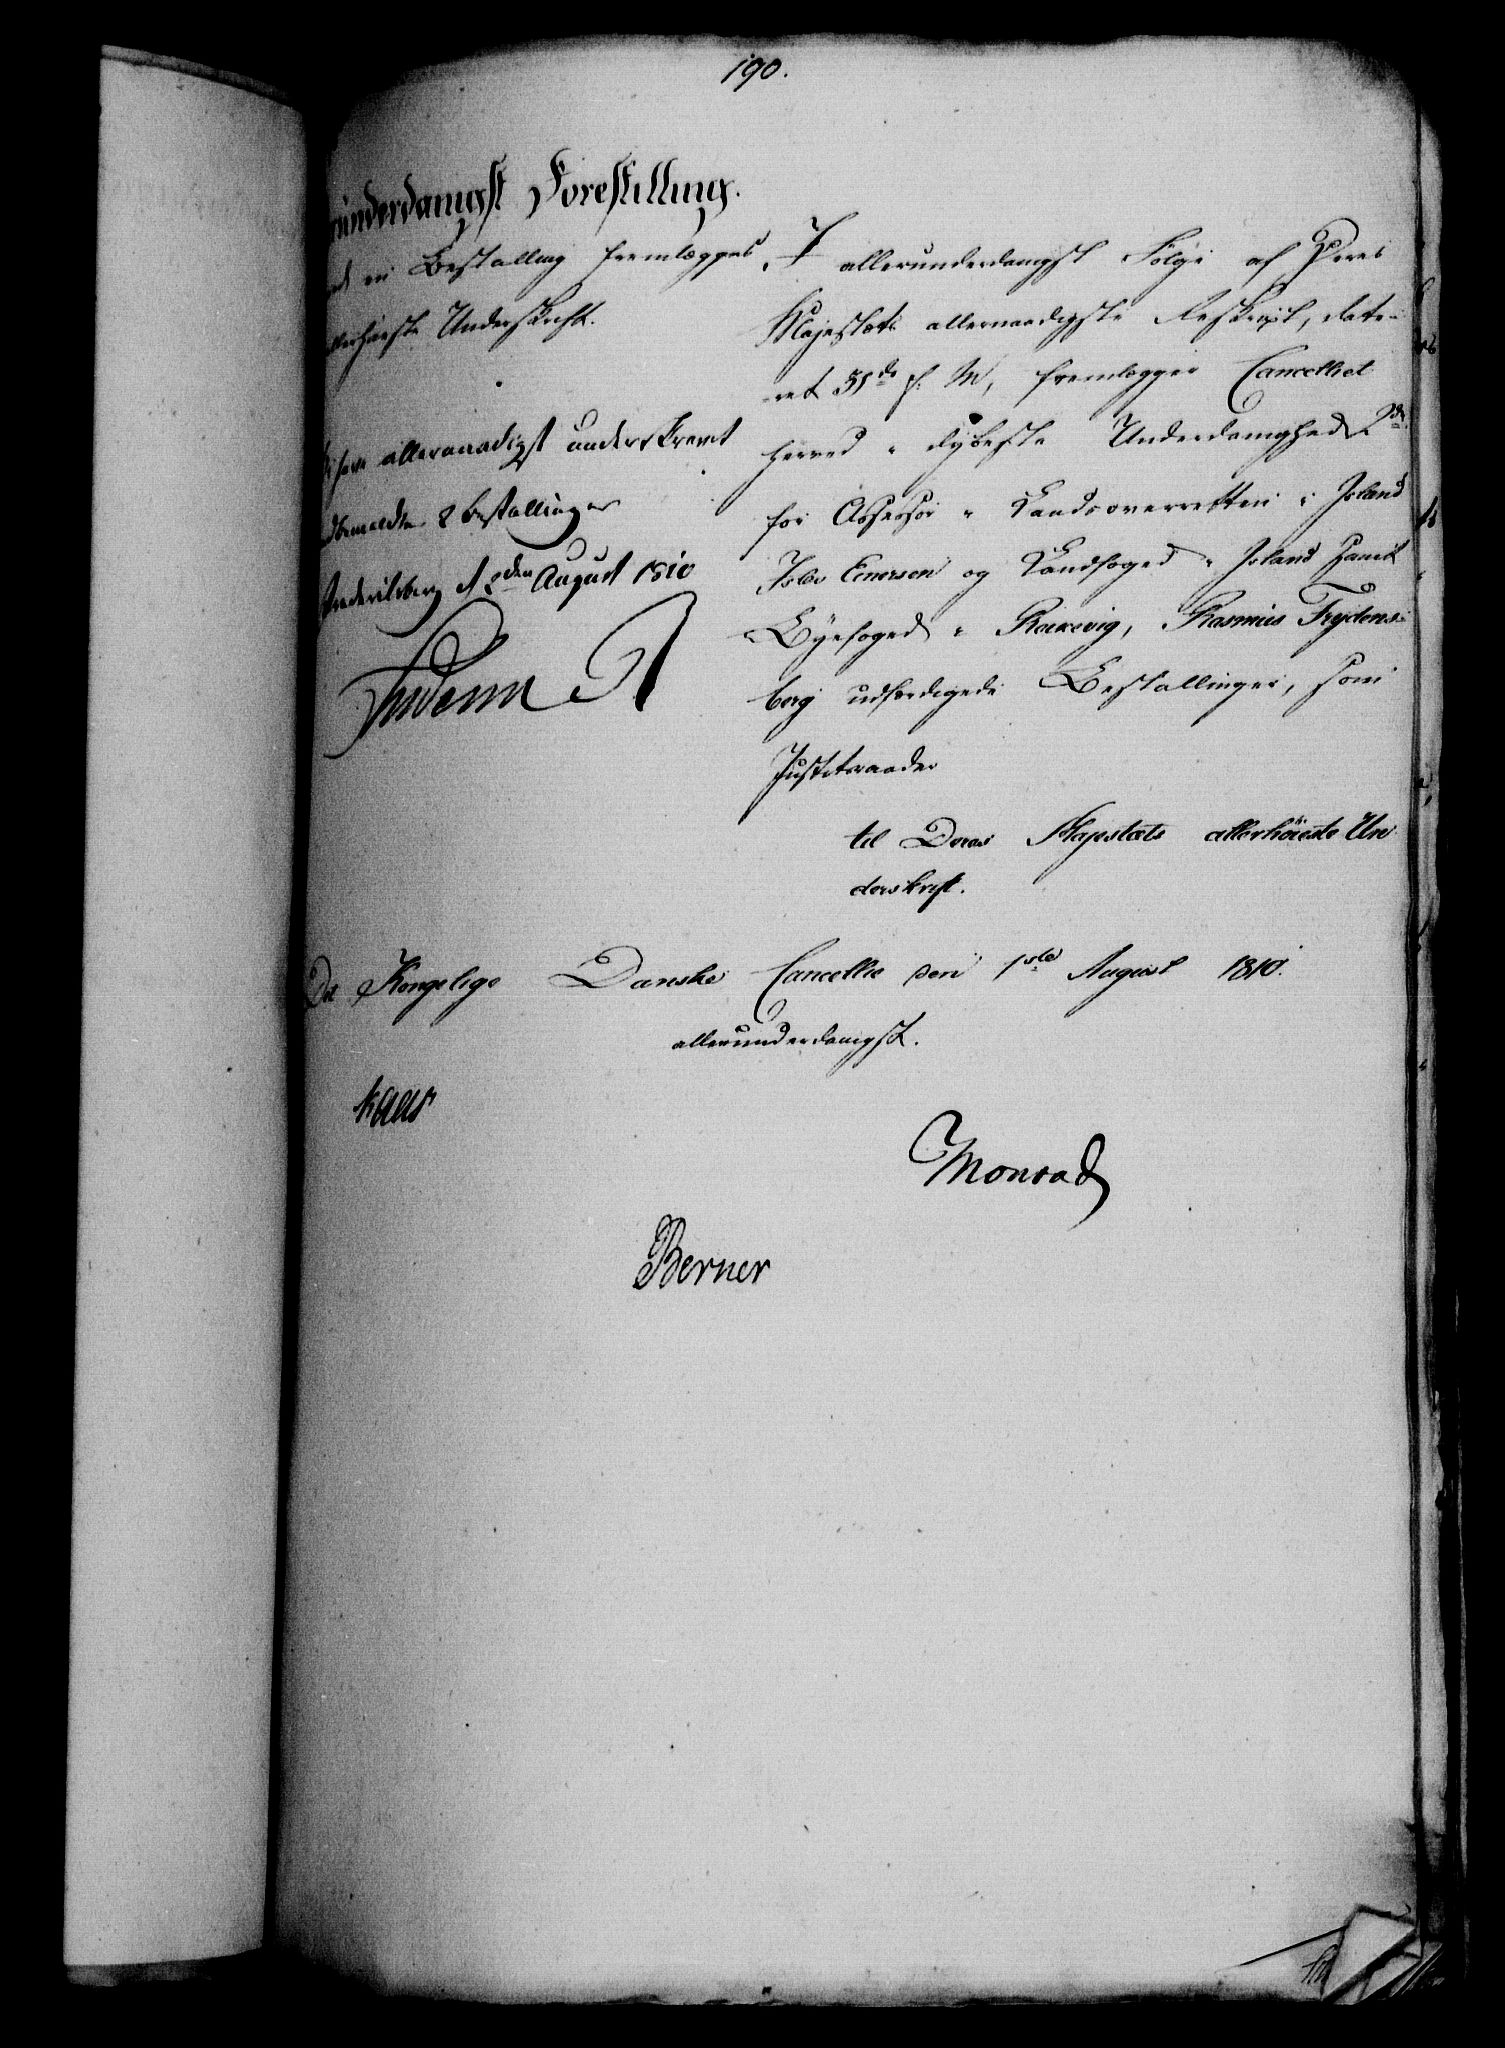 190.
underdanigst Forestilling.
en Bestalling fremlægges
allerhøieste Underskrift.
have allernaadigst underskrevet
2 Bestallinger
Frederiksberg d 2den August 1810
Frederik R
I allerunderdanigst Følge af Deres
Majestæts allernaadigste Reskript, date-
ret 31de f. M, fremlægger Cancelliet
herved i dybeste Underdanighed 2de
for Assessor i Landsoverretten i Island
Islev Einersen og Landfoged i Island samt
Byefoged i Reikevig, Rasmus Frydens-
berg udfærdigede Bestallinger, som
Justitsraader
til Deres Majestæts allerhøieste Un
derskrift.
Det Kongelige Danske Cancellie den 1ste August 1810.
allerunderdanigst.
Kaas
Monrad
Berner